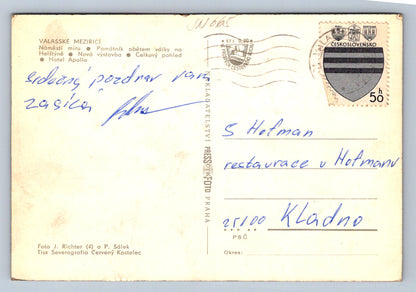 VALAŠSKÉ MEZIŘÍČÍ
Náměstí míru ● Památník obětem války na
Helštýně ● Nová výstavba ● Celkový pohled
● Hotel Apollo
ČESKOSLOVENSKO
50 h
srdečný pozdrav vám
zasílá
NAKLADATELSTVÍ PRESSFOTO PRAHA
S Hofman
restaurace u Hofmanu
25100 Kladno
PSČ
Okres:
Foto J. Richter (4) a P. Šálek
Tisk Severografia Červený Kostelec